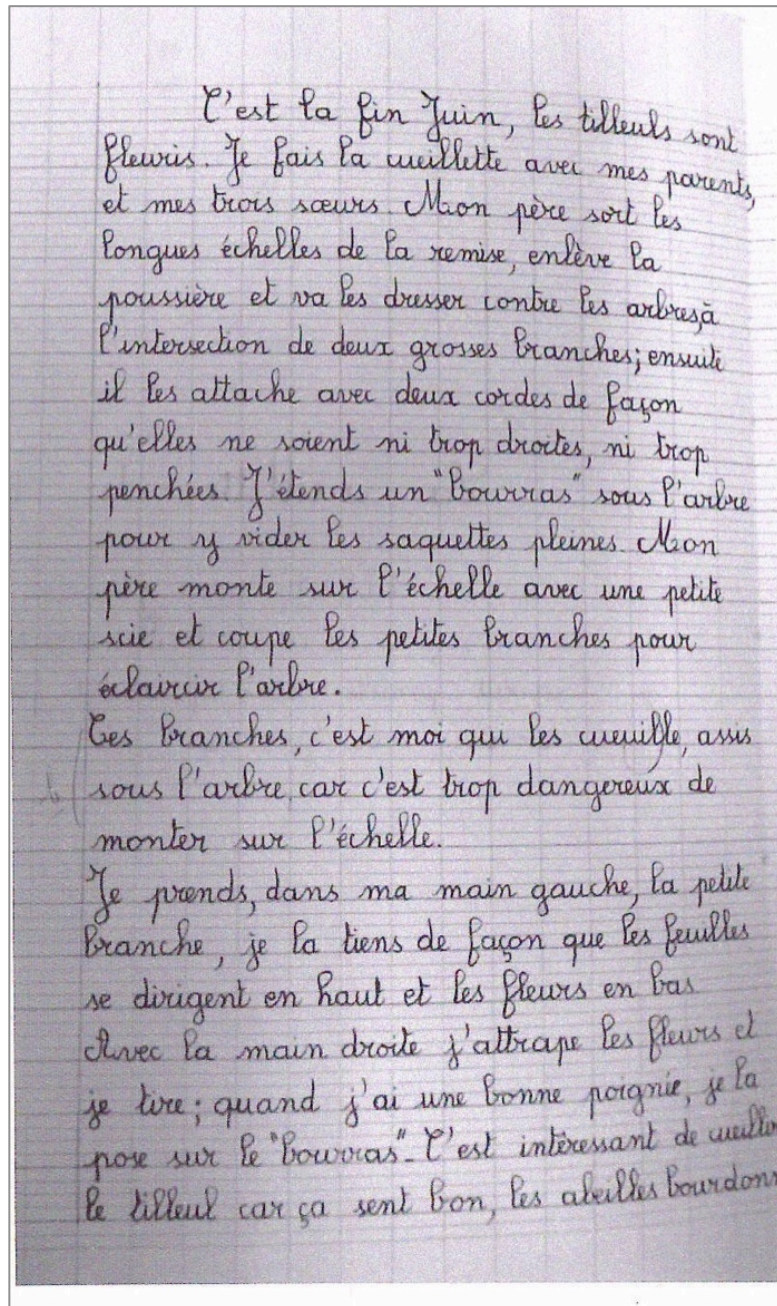 C'est la fin Juin, les tilleuls sont
fleuris. Je fais la cueillette avec mes parents,
et mes trois sœurs. Mon père sort les
longues échelles de la remise, enlève la
poussière et va les dresser contre les arbres, à
l'intersection de deux grosses branches; ensuite
il les attache avec deux cordes de façon
qu'elles ne soient ni trop droites, ni trop
penchées. J'étends un "bourras" sous l'arbre
pour y vider les saquettes pleines. Mon
père monte sur l'échelle avec une petite
scie et coupe les petites branches pour
éclaircir l'arbre.
Ces branches, c'est moi qui les cueille, assis
sous l'arbre, car c'est trop dangereux de
monter sur l'échelle.
Je prends, dans ma main gauche, la petite
branche, je la tiens de façon que les feuilles
se dirigent en haut et les fleurs en bas
Avec la main droite j'attrape les fleurs et
je tire; quand j'ai une bonne poignie, je la
pose sur le "bourras". C'est intéressant de cueillir
le tilleul car ça sent bon, les abeilles bourdonn